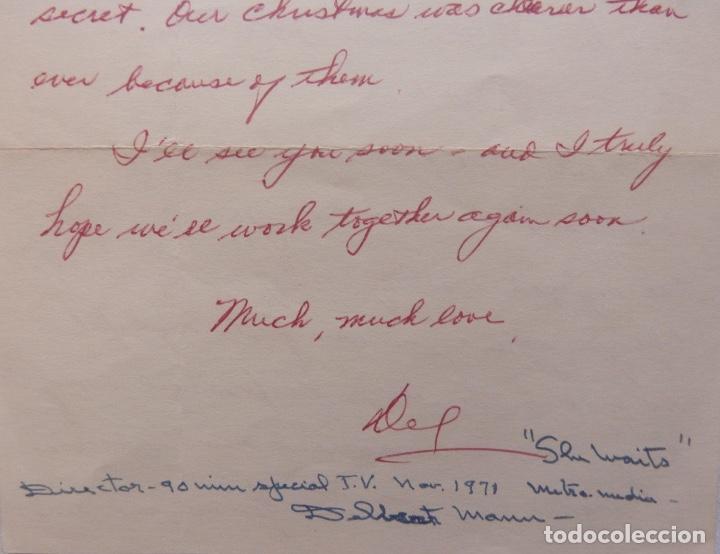 secret. Our Christmas was than
ever because of them
I'll see you soon - and I truly
hope we'll work together again soon.
Much, much love,
Del
"She Waits"
Director - 90 min special T.V. Nov. 1971 Metro-media -
Delbert Mann -
todocoleccion